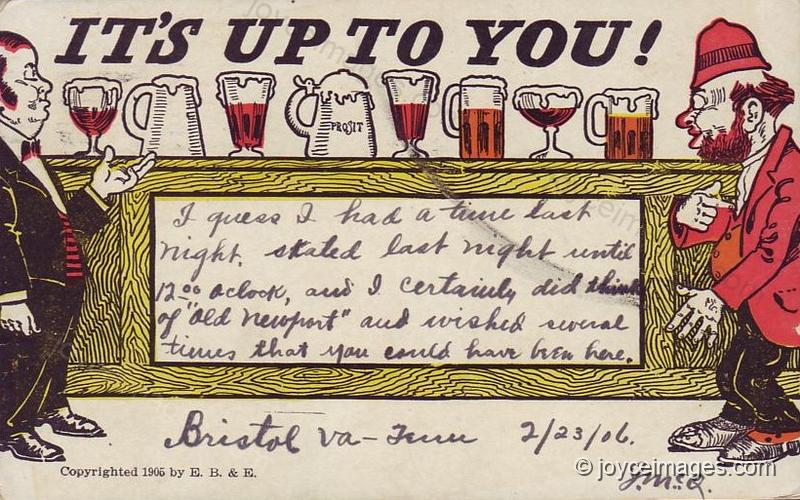 IT'S UP TO YOU!
PROSIT
I guess I had a time last
night. skated last night until
12⁰⁰ oclock, and I certainly did think
of "Old Newport" and wished several
times that you could have been here.
Bristol Va-Tenn 2/23/06.
Copyrighted 1905 by E. B. & E.
© joyceimages.com